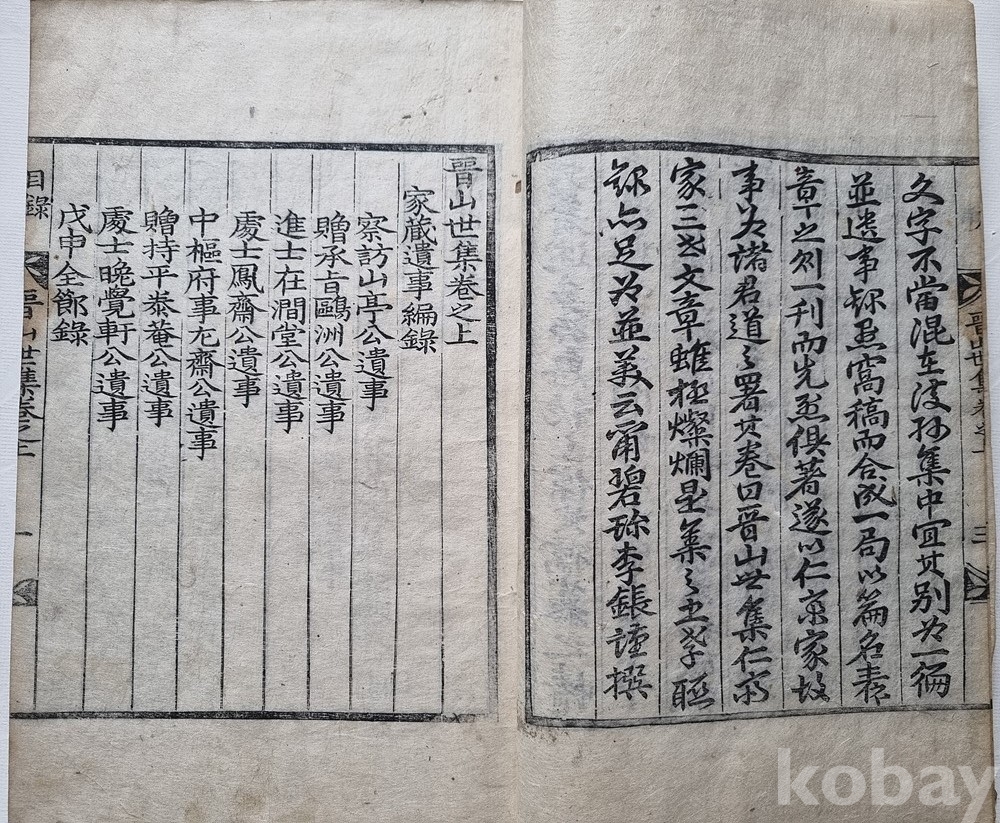 文字不當混在後孫集中宜其別为一徧
並遺事録盡寫稿而合成一局以篇名表
章之例一刊而先烈俱著遂以仁齋家故
事为諸君道之署其卷曰晋山世集仁齋
家三世文章雖極燦爛是集之出孝聯
録亦足为並美云甯碧珎李鋹謹撰
晋山世集卷之上
家蔵遺事編錄
察訪山亭公遺事
贈承旨鷗洲公遺事
進士在澗堂公遺事
處士鳳齋公遺事
中樞府事尢齋公遺事
贈持平泰菴公遺事
處士晩覺軒公遺事
戊申全節錄
目錄
晋山世集卷之上
一
晋山世集卷之上
三
kobay